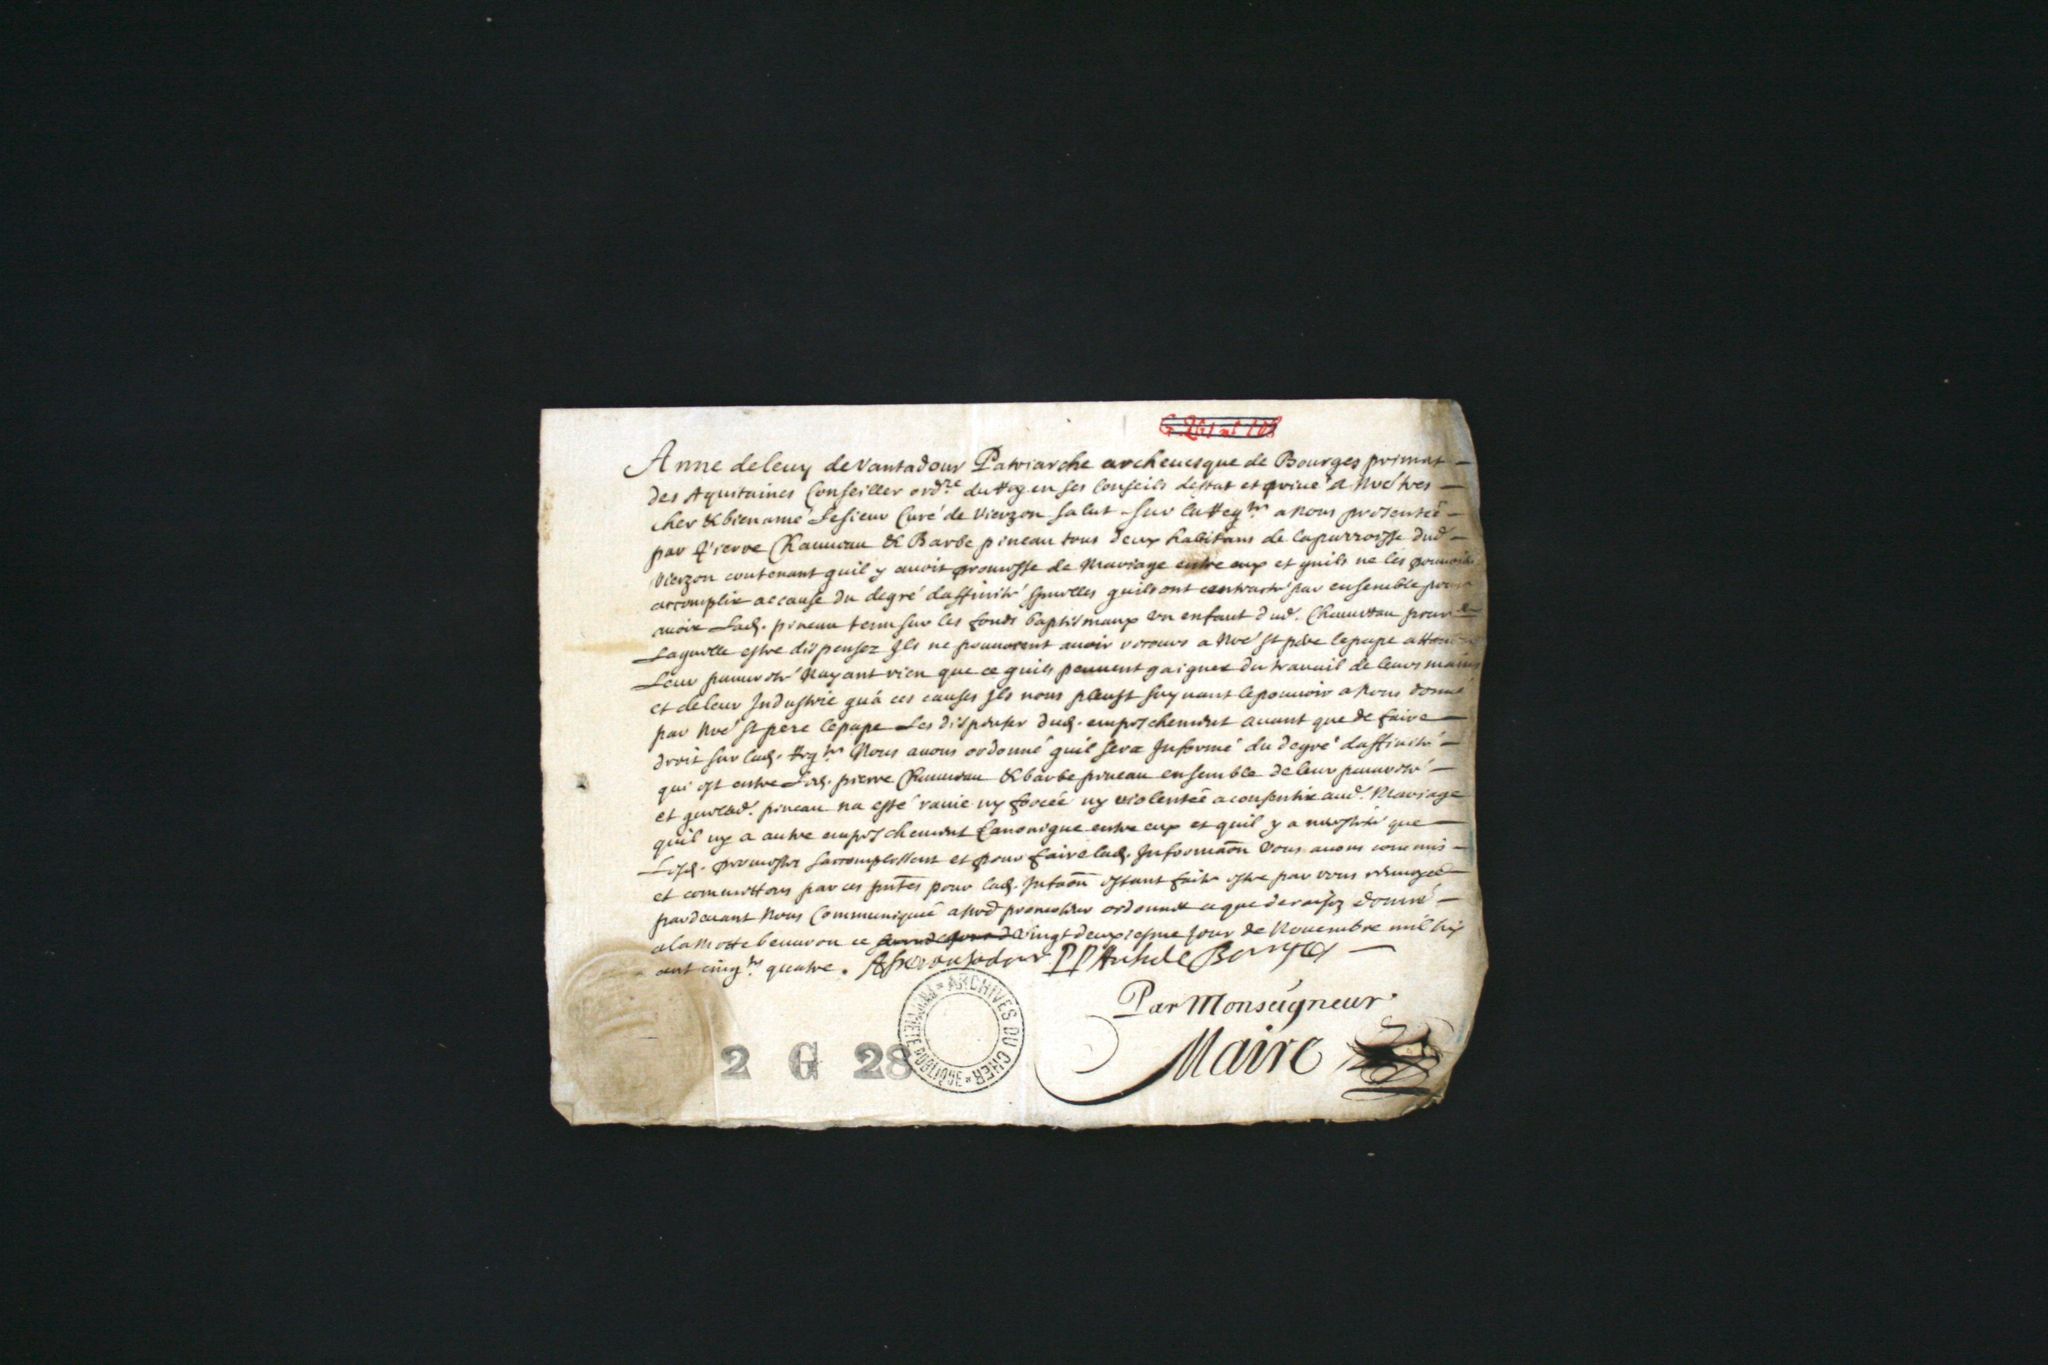 G. 261 nl 108
Anne de levy de Vantadour Patriarche archevesque de Bourges primat
des Aquitaines Conseiller ord.re du Roy en ses Conseils destat et privé A Nre tres
cher & bien amé Le sieur Curé de Vierzon salut Sur la Req.te a Nous presentée
par Pierre Chauveau & Barbe pineau tous deux habitans de la parroisse dud.
Vierzon contenant quil y avoit promesse de Mariage entre eux et quils ne les
accomplir a cause du degré daffinité quils ont contracté par ensemble pour
avoir Lad. pineau tenu sur les fonds baptismaux un enfant dud. Chauveau pour
Laquelle estre dispensez Ils ne peuvent avoir recours a Nre St pere le pape attendu
Leur pauvreté Nayant rien que ce quils peuvent gaigner du travail de leurs mains
et de leur Industrie quà ces causes Ils nous pleust suyvant le pouvoir a Nous donné
par Nre St pere le pape Les dispenser dud. empeschement avant que de faire
droit sur lad. Req.te Nous avons ordonné quil sera Informé du degré daffinité
qui est entre Led. pierre Chauveau & barbe pineau ensemble de leur pauvreté
et que lad. pineau na esté ravie ny forcée ny violentée a consentir aud. Mariage
quil ny a autre empeschement Canonique entre eux et quil y a necessité que
Lesd. promesses saccomplissent et pour faire lad. Informaon Vous avons commis
et committons par ces pntes pour lad. Infaon estant faite estre par vous renvoyée
pardevant Nous Communiquée a Nre promoteur ordonner ce que de raison donné
a la Motte beuvron ce vingt deuxiesme Jour de Novembre mil six
cent cinq.te quatre. PP Arch de Bourges
Par Monseigneur
Maire
2 G 28
ARCHIVES DU CHER * PROPRIÉTÉ PUBLIQUE *